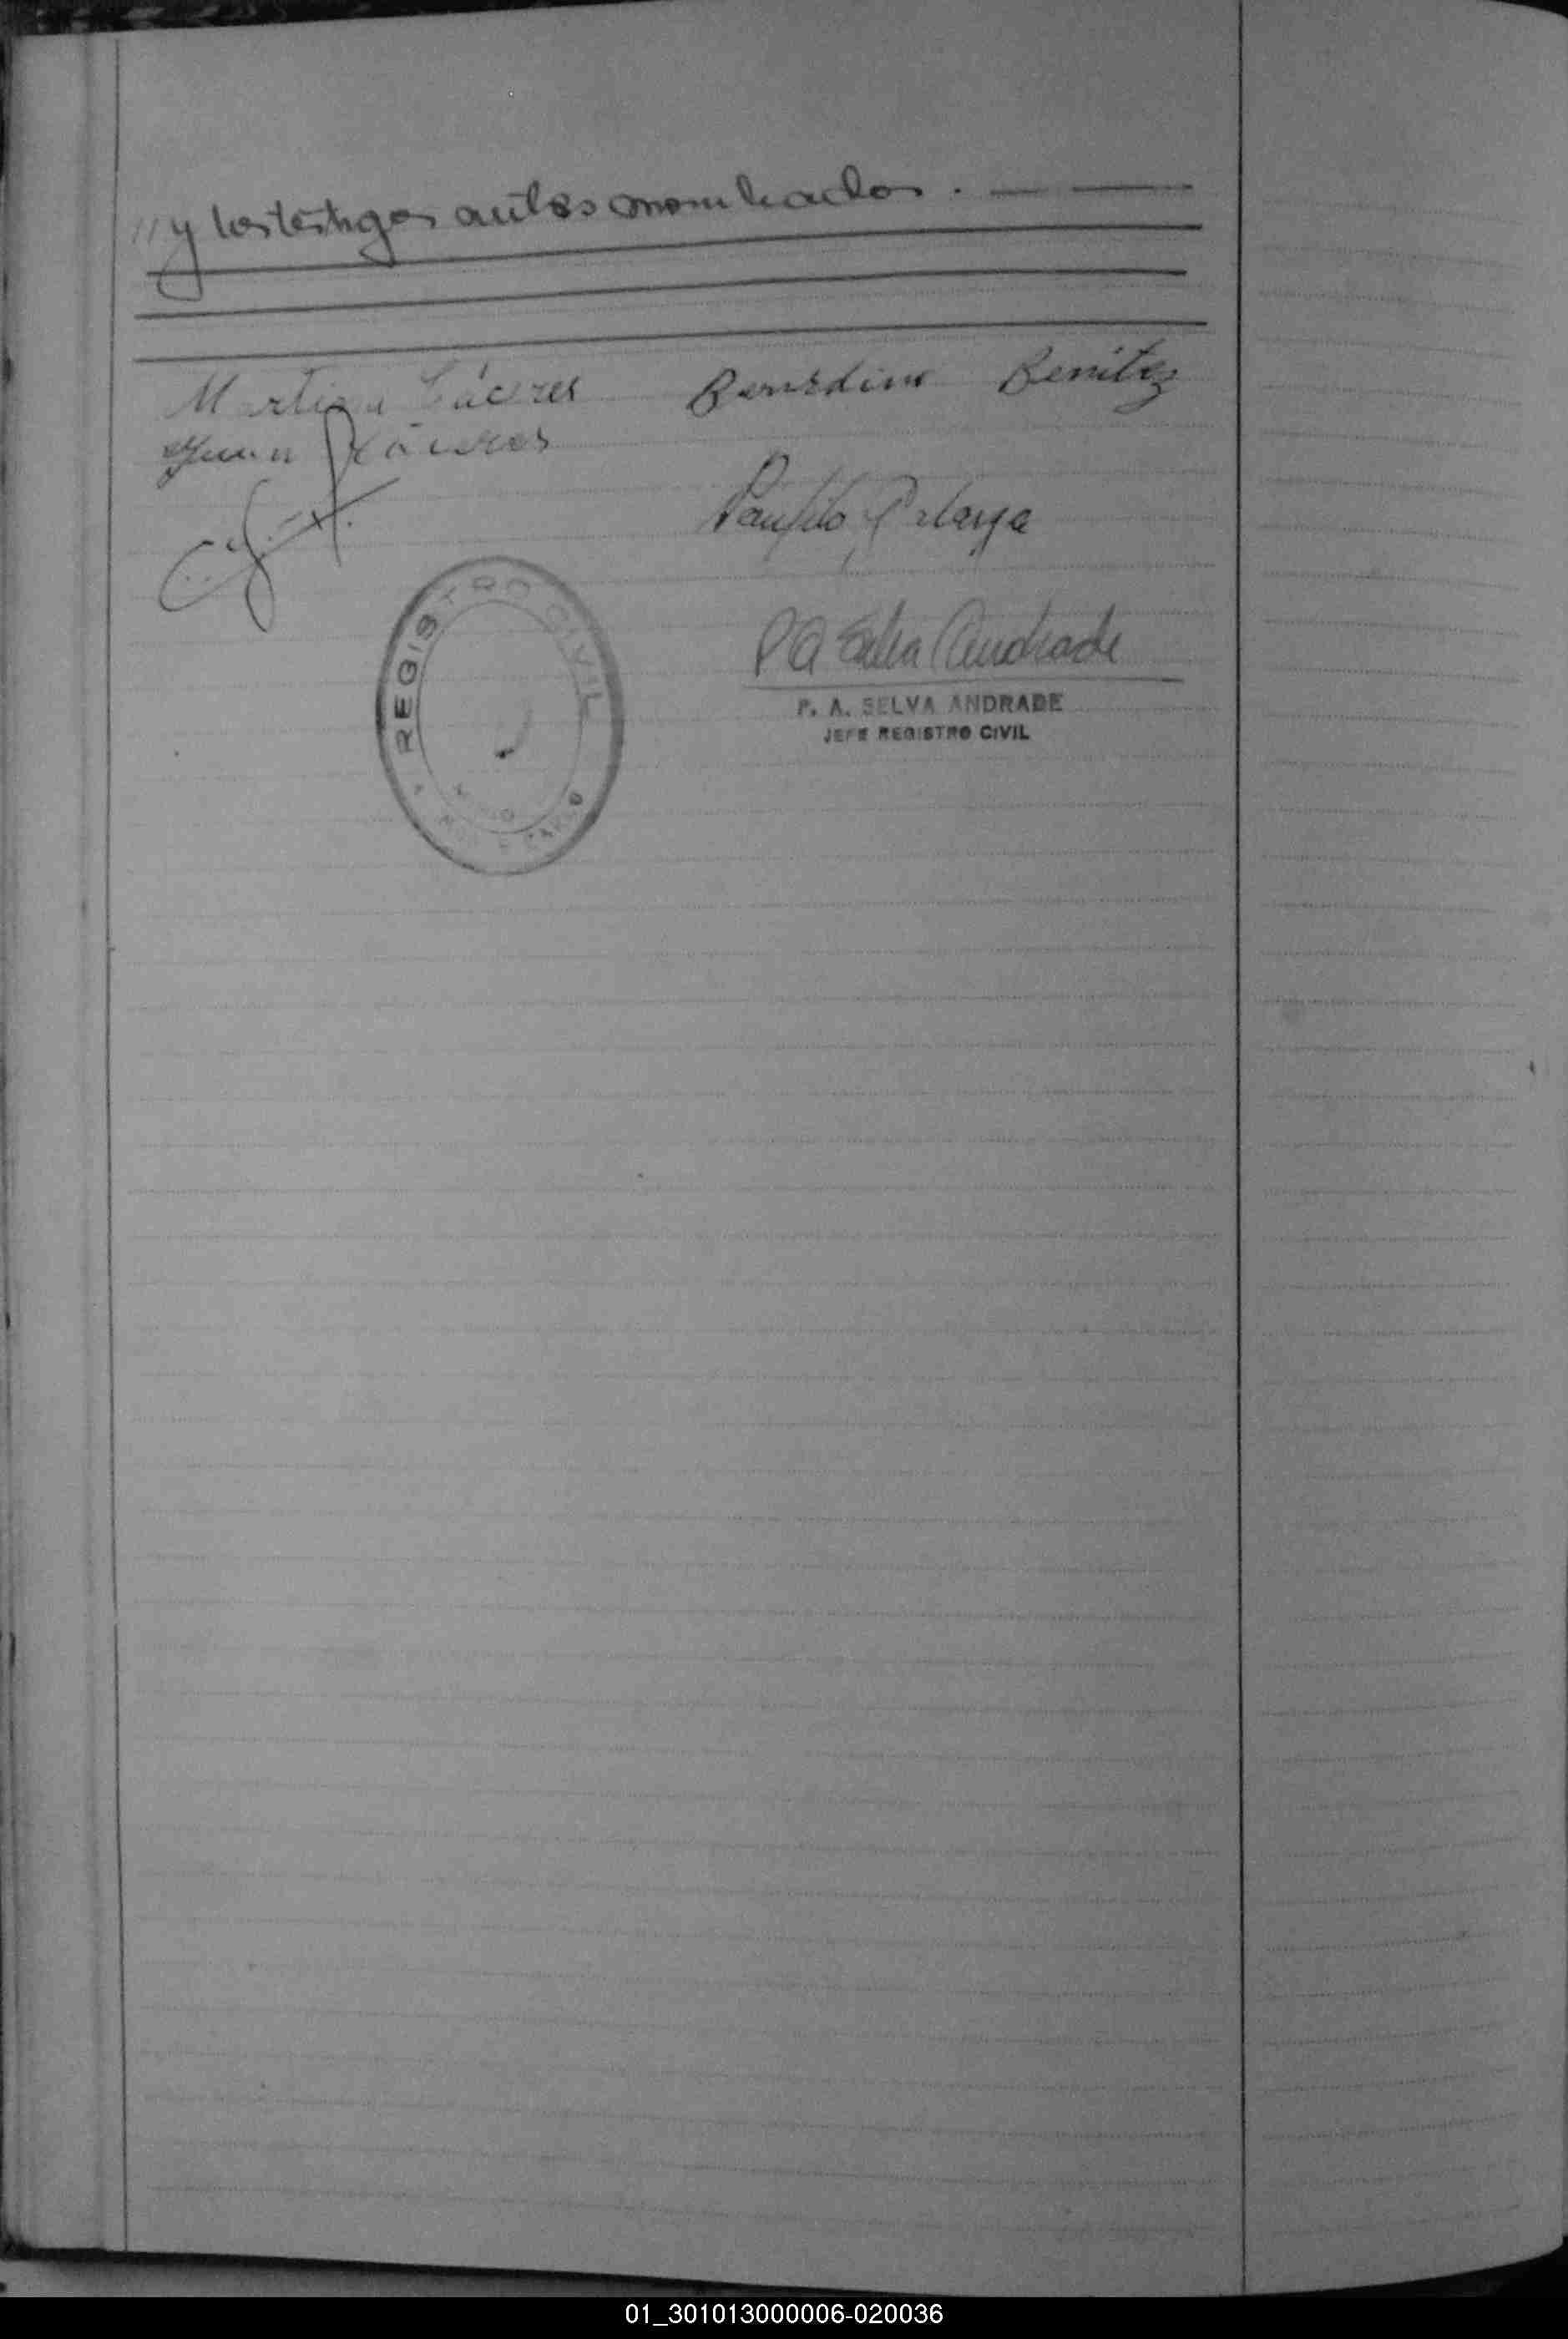 // y los testigos antes nombrados . — —
Martina Cáceres Bernardino Benitez
Juan Cáceres
REGISTRO CIVIL
P A Selva Andrade
P. A. SELVA ANDRADE
JEFE REGISTRO CIVIL
01_301013000006-020036